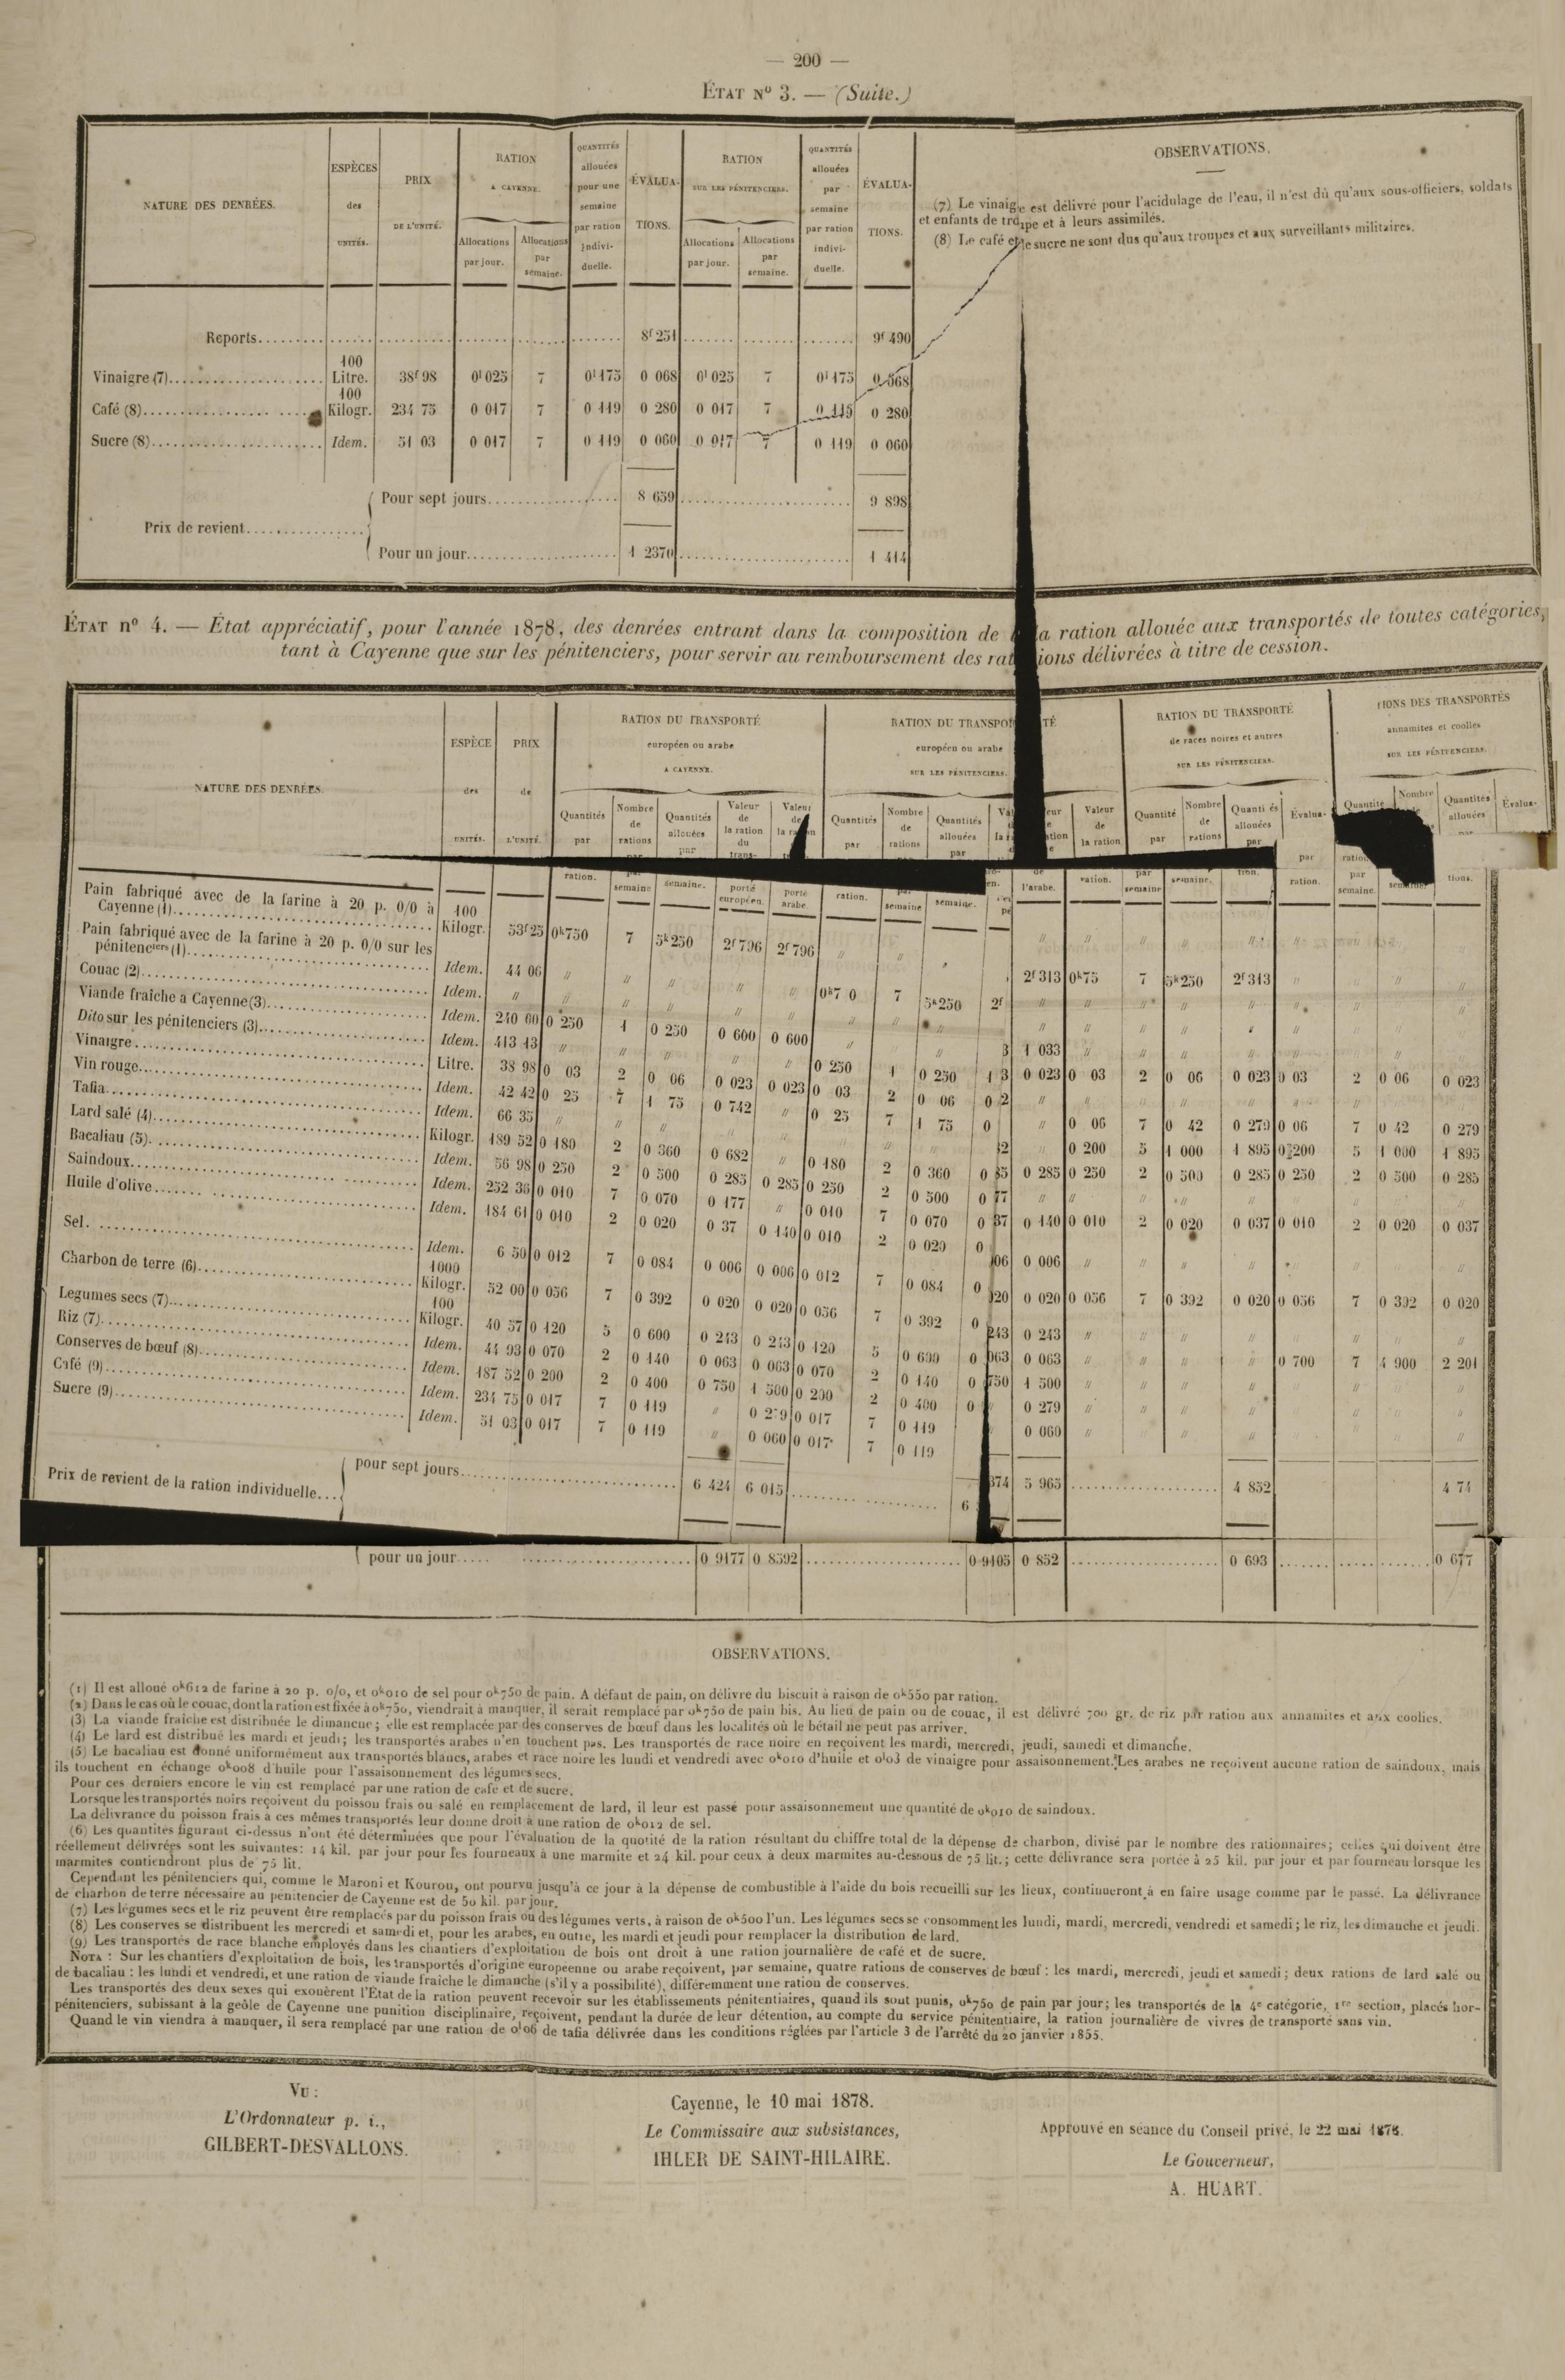 — 200 —
ÉTAT Nº 3. — (Suite.)
NATURE DES DENRÉES.
ESPÈCES des UNITÉS.
PRIX DE L'UNITÉ.
RATION A CAYENNE.
Allocations par jour.
Allocations par semaine.
QUANTITÉS allouées pour une semaine par ration indivi-duelle.
ÉVALUA-TIONS.
RATION SUR LES PÉNITENCIERS.
Allocations par jour.
Allocations par semaine.
QUANTITÉS allouées par semaine par ration indivi-duelle.
ÉVALUA-TIONS.
OBSERVATIONS.
(7) Le vinaigre est délivré pour l'acidulage de l'eau, il n'est dû qu'aux sous-officiers, soldats
et enfants de troupe et à leurs assimilés.
(8) Le café et le sucre ne sont dus qu'aux troupes et aux surveillants militaires.
Reports 8f 251 9f 490
Vinaigre (7) 100 Litre. 38f 98 0l 025 7 0l 175 0 068 0l 025 7 0l 175 0 068
Café (8) 100 Kilogr. 234 75 0 017 7 0 119 0 280 0 017 7 0 119 0 280
Sucre (8) Idem. 51 03 0 017 7 0 119 0 060 0 017 7 0 119 0 060
Prix de revient
Pour sept jours 8 659 9 898
Pour un jour 1 2370 1 414
ÉTAT nº 4. — État appréciatif, pour l'année 1878, des denrées entrant dans la composition de la ration allouée aux transportés de toutes catégories,
tant à Cayenne que sur les pénitenciers, pour servir au remboursement des rations délivrées à titre de cession.
NATURE DES DENRÉES.
ESPÈCE des UNITÉS.
PRIX de L'UNITÉ.
RATION DU TRANSPORTÉ européen ou arabe A CAYENNE.
Quantités par ration.
Nombre de rations par semaine
Quantités allouées par semaine.
Valeur de la ration du trans-porté européen.
Valeur de la ration porté arabe.
RATION DU TRANSPORTÉ européen ou arabe SUR LES PÉNITENCIERS.
Quantités par ration.
Nombre de rations semaine
Quantités allouées par semaine.
Valeur de la ration de l'arabe.
RATION DU TRANSPORTÉ de races noires et autres SUR LES PÉNITENCIERS.
Quantité par ration.
Nombre de rations par semaine
Quanti és allouées par semaine.
Évalua-tion.
TIONS DES TRANSPORTÉS annamites et coolies SUR LES PÉNITENCIERS.
Quantité par ration.
Nombre par semaine.
Quantités allouées par
Évalua-tions.
Pain fabriqué avec de la farine à 20 p. 0/0 à
Cayenne (1) 100 Kilogr. 53f 25 0k 750 7 5k 250 2f 796 2f 796 // //
Pain fabriqué avec de la farine à 20 p. 0/0 sur les
pénitenciers (1) Idem. 44 06 // // // // // 0k 7 0 7 5k 250 2f 2f 313 0k 75 7 5k 250 2f 313
Couac (2) Idem. //
Viande fraîche a Cayenne (3) Idem. 240 00 0 250 1 0 250 0 600 0 600
Dito sur les pénitenciers (3) Idem. 413 13 // // // // // 0 250 1 0 250 1 3 1 033
Vinaigre Litre. 38 98 0 03 2 0 06 0 023 0 023 0 03 2 0 06 0 2 0 023 0 03 2 0 06 0 023 0 03 2 0 06 0 023
Vin rouge Idem. 42 42 0 25 7 1 75 0 742 // 0 25 7 1 75 0 2 //
Tafia Idem. 66 35 // // // // // // // // 0 06 7 0 42 0 279 0 06 7 0 42 0 279
Lard salé (4) Kilogr. 189 52 0 180 2 0 360 0 682 // 0 180 2 0 360 0 2 // 0 200 5 1 000 1 895 0 200 5 1 000 1 895
Bacaliau (5) Idem. 56 98 0 250 2 0 500 0 285 0 285 0 250 2 0 500 0 85 0 285 0 250 2 0 500 0 285 0 250 2 0 500 0 285
Saindoux Idem. 252 36 0 010 7 0 070 0 177 // 0 010 7 0 070 0 77 //
Huile d'olive Idem. 184 61 0 010 2 0 020 0 37 0 140 0 010 2 0 020 0 37 0 140 0 010 2 0 020 0 037 0 010 2 0 020 0 037
Sel Idem. 6 50 0 012 7 0 084 0 006 0 006 0 012 7 0 084 0 06 0 006
Charbon de terre (6) 1000 Kilogr. 52 00 0 056 7 0 392 0 020 0 020 0 056 7 0 392 0 020 0 020 0 056 7 0 392 0 020 0 056 7 0 392 0 020
Legumes secs (7) 100 Kilogr. 40 57 0 120 5 0 600 0 243 0 243 0 120 5 0 600 0 243 0 243
Riz (7) Idem. 44 93 0 070 2 0 140 0 063 0 063 0 070 2 0 140 0 063 0 063 // // // // 0 700 7 4 900 2 201
Conserves de bœuf (8) Idem. 187 52 0 200 2 0 400 0 750 1 500 0 200 2 0 400 0 750 1 500
Café (9) Idem. 234 75 0 017 7 0 119 // 0 279 0 017 7 0 119 0 279
Sucre (9) Idem. 51 03 0 017 7 0 119 // 0 060 0 017 7 0 119 0 060
Prix de revient de la ration individuelle
pour sept jours 6 424 6 015 6 374 5 965 4 852 4 74
pour un jour 0 9177 0 8592 0 9105 0 852 0 693 0 677
OBSERVATIONS.
(1) Il est alloué 0k612 de farine à 20 p. 0/0, et 0k010 de sel pour 0k750 de pain. A défaut de pain, on délivre du biscuit à raison de 0k550 par ration.
(2) Dans le cas où le couac, dont la ration est fixée à 0k750, viendrait à manquer, il serait remplacé par 0k750 de pain bis. Au lieu de pain ou de couac, il est délivré 700 gr. de riz par ration aux annamites et aux coolies.
(3) La viande fraiche est distribuée le dimanche ; elle est remplacée par des conserves de bœuf dans les localités où le bétail ne peut pas arriver.
(4) Le lard est distribué les mardi et jeudi ; les transportés arabes n'en touchent pas. Les transportés de race noire en reçoivent les mardi, mercredi, jeudi, samedi et dimanche.
(5) Le bacaliau est donné uniformément aux transportés blancs, arabes et race noire les lundi et vendredi avec 0k010 d'huile et 0l03 de vinaigre pour assaisonnement. Les arabes ne reçoivent aucune ration de saindoux, mais
ils touchent en échange 0k008 d'huile pour l'assaisonnement des légumes secs.
Pour ces derniers encore le vin est remplacé par une ration de café et de sucre.
Lorsque les transportés noirs reçoivent du poisson frais ou salé en remplacement de lard, il leur est passé pour assaisonnement une quantité de 0k010 de saindoux.
La délivrance du poisson frais à ces mêmes transportés leur donne droit à une ration de 0k012 de sel.
(6) Les quantités figurant ci-dessus n'ont été déterminées que pour l'évaluation de la quotité de la ration résultant du chiffre total de la dépense de charbon, divisé par le nombre des rationnaires ; celles qui doivent être
réellement délivrées sont les suivantes : 14 kil. par jour pour les fourneaux à une marmite et 24 kil. pour ceux à deux marmites au-dessous de 75 lit. ; cette délivrance sera portée à 25 kil. par jour et par fourneau lorsque les
marmites contiendront plus de 75 lit.
Cependant les pénitenciers qui, comme le Maroni et Kourou, ont pourvu jusqu'à ce jour à la dépense de combustible à l'aide du bois recueilli sur les lieux, continueront à en faire usage comme par le passé. La délivrance
de charbon de terre nécessaire au pénitencier de Cayenne est de 50 kil. par jour.
(7) Les légumes secs et le riz peuvent être remplacés par du poisson frais ou des légumes verts, à raison de 0k500 l'un. Les légumes secs se consomment les lundi, mardi, mercredi, vendredi et samedi ; le riz, les dimanche et jeudi.
(8) Les conserves se distribuent les mercredi et samedi et, pour les arabes, en outre, les mardi et jeudi pour remplacer la distribution de lard.
(9) Les transportés de race blanche employés dans les chantiers d'exploitation de bois ont droit à une ration journalière de café et de sucre.
NOTA : Sur les chantiers d'exploitation de bois, les transportés d'origine européenne ou arabe reçoivent, par semaine, quatre rations de conserves de bœuf : les mardi, mercredi, jeudi et samedi ; deux rations de lard salé ou
de bacaliau : les lundi et vendredi, et une ration de viande fraiche le dimanche (s'il y a possibilité), différemment une ration de conserves.
Les transportés des deux sexes qui exonèrent l'Etat de la ration peuvent recevoir sur les établissements pénitentiaires, quand ils sout punis, 0k750 de pain par jour ; les transportés de la 4e catégorie, 1re section, placés hor-
pénitenciers, subissant à la geôle de Cayenne une punition disciplinaire, reçoivent, pendant la durée de leur détention, au compte du service pénitentiaire, la ration journalière de vivres de transporté sans vin.
Quand le vin viendra à manquer, il sera remplacé par une ration de 0l06 de tafia délivrée dans les conditions réglées par l'article 3 de l'arrêté du 20 janvier 1855.
VU :
L'Ordonnateur p. i.,
GILBERT-DESVALLONS.
Cayenne, le 10 mai 1878.
Le Commissaire aux subsistances,
IHLER DE SAINT-HILAIRE.
Approuvé en séance du Conseil privé, le 22 mai 1878.
Le Gouverneur,
A. HUART.